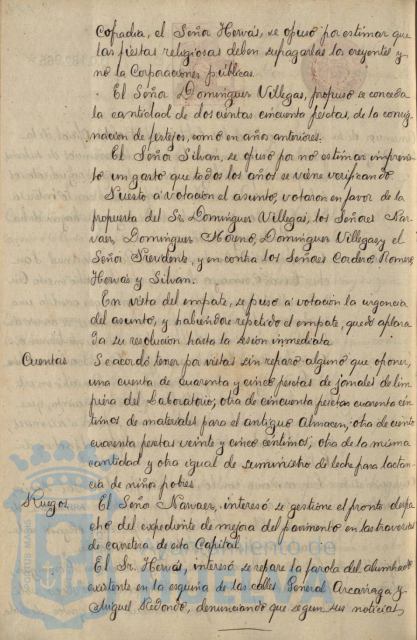 Cofradia, el Señor Hervás, se opuso por estimar que
las fiestas religiosas deben sufragarlas los creyentes y
no la Corporaciones públicas.
El Señor Dominguez Villegas, propuso se conceda
la cantidad de dos cientas cincuenta pesetas, de la consig
nacion de festejos, como en años anteriores.
El Señor Silvan, se opuso por no estimar imprevis
to un gasto que todos los años se viene verificando.
Puesto a votación el asunto, votaron en favor de la
propuesta del Sr. Dominguez Villegas, los Señores Nar
vaez, Dominguez Moreno, Dominguez Villegas y el
Señor Presidente, y en contra los Señores Cordero Romero,
Hervás y Silvan.
En vista del empate, se puso a votación la urgencia
del asunto, y habiéndose repetido el empate, quedó aplaza
da su resolución hasta la sesion inmediata.
Cuentas Se acordó tener por vistas sin reparo alguno que oponer,
una cuenta de cuarenta y cinco pesetas de jornales de lim
pieza del Laboratorio; otra de cincuenta pesetas cuarenta cén
timos de materiales para el antiguo Almacen; otra de ciento
cuarenta pesetas veinte y cinco centimos; otra de la misma
cantidad y otra igual de suministro de leche para lactan
cia de niños pobres.
Ruegos. El Señor Narvaez, interesó se gestione el pronto despa
cho del expediente de mejora del pavimento en las travesias
de carretera de esta Capital.
El Sr. Hervás, interesó se repare la farola del alumbrado
existente en la esquina de las calles General Azcarraga y
Miguel Redondo, denunciando que segun sus noticias,